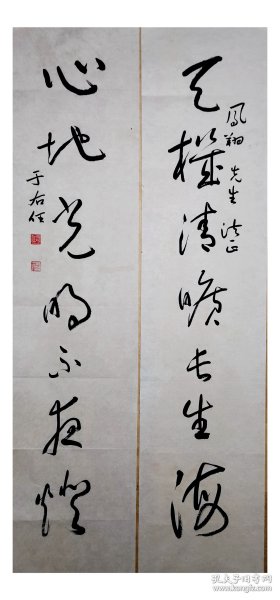 天機清曠長生海
鳳翔先生法正
心地光明不夜燈
于右任
孔夫子旧书网